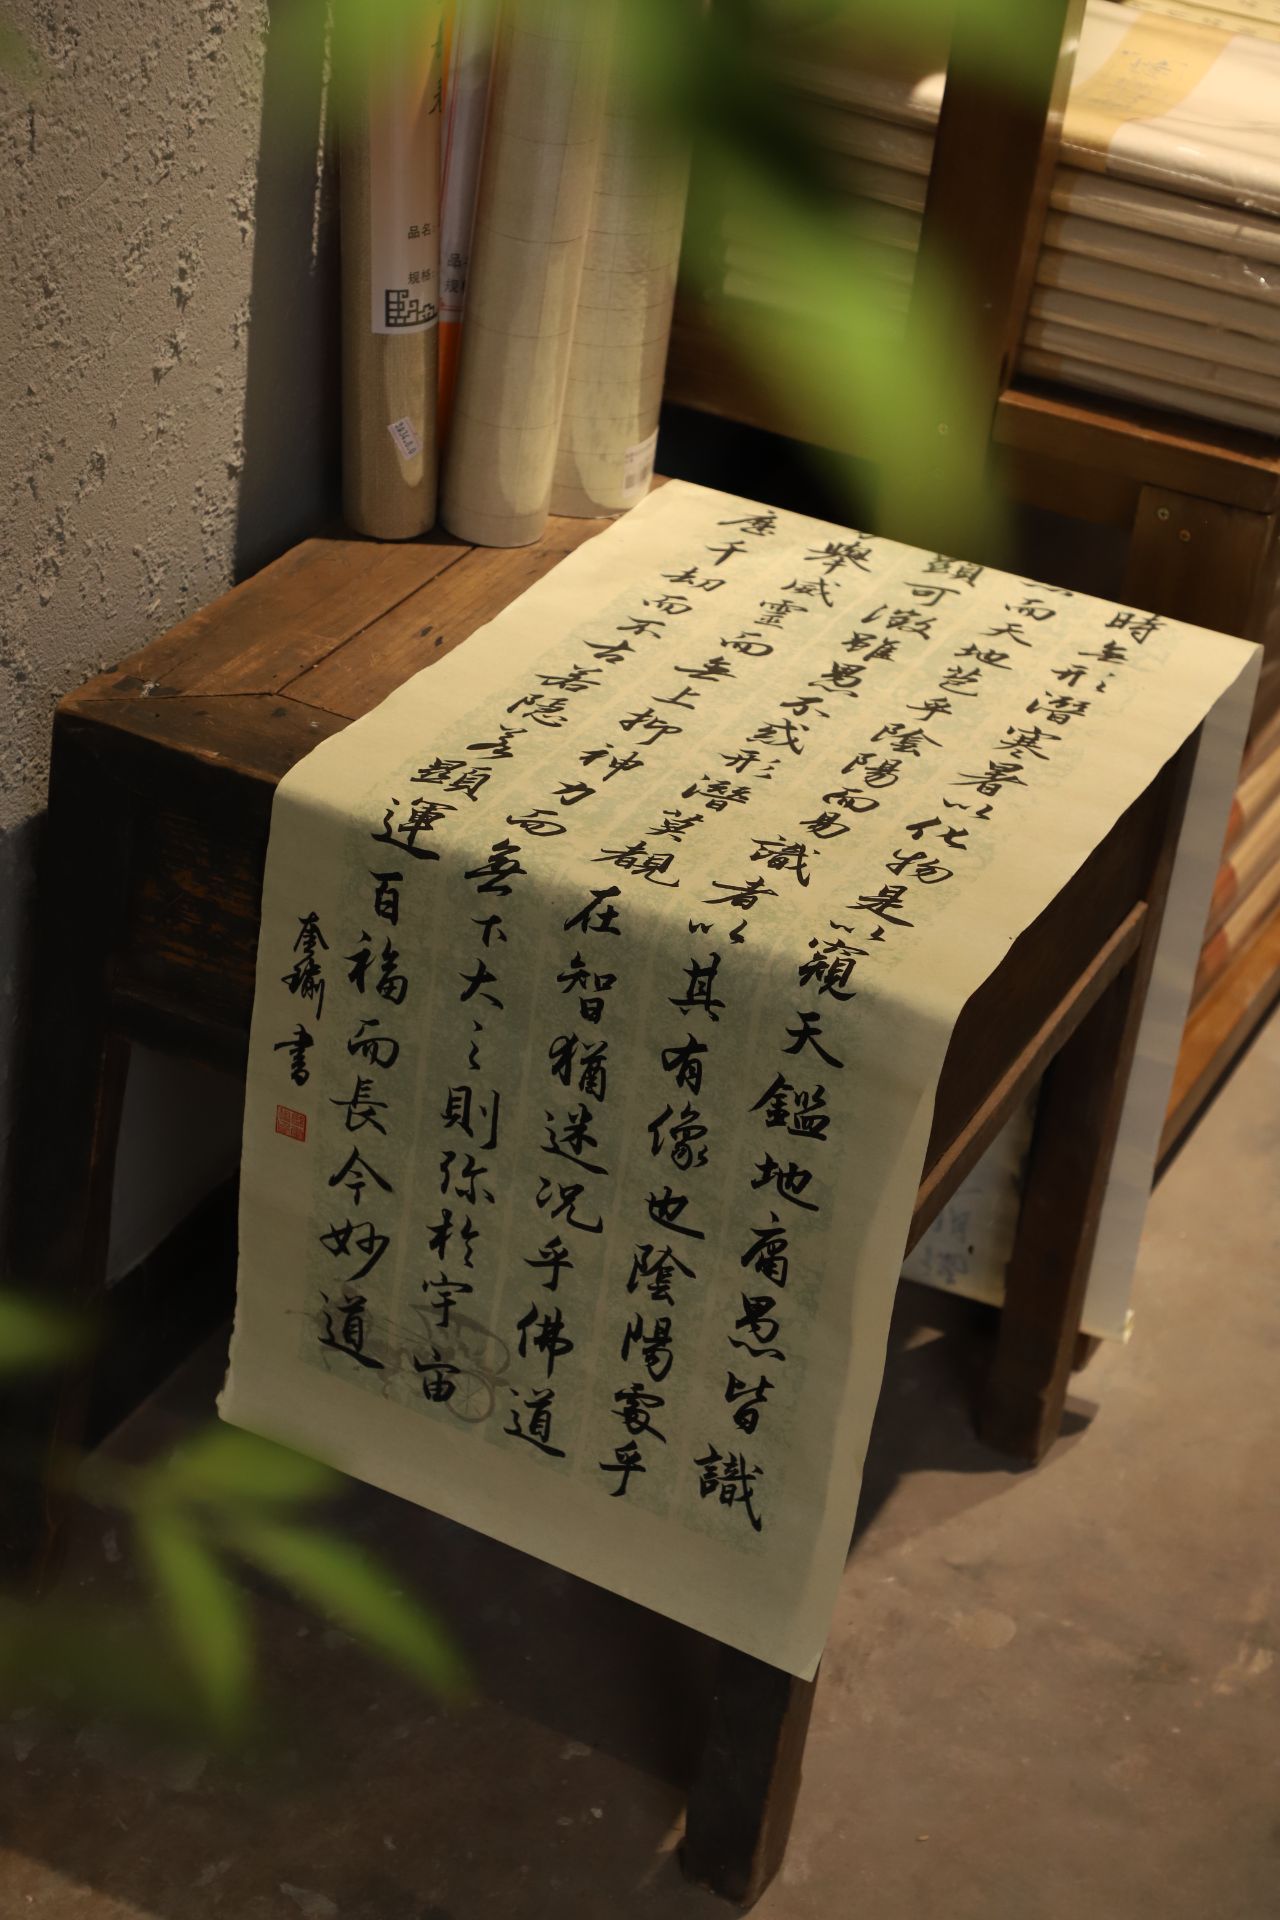 時無形潛寒暑以化物是以窺天鑑地庸愚皆識
而天地苞乎陰陽而易識者以其有像也陰陽處乎
顯可徵雖愚不惑形潛莫覩在智猶迷況乎佛道
舉威靈而無上抑神力而無下大之則弥於宇宙
歷千劫而不古若隐若顯運百福而長今妙道
奎瑜書
品名:
规格:
品
规